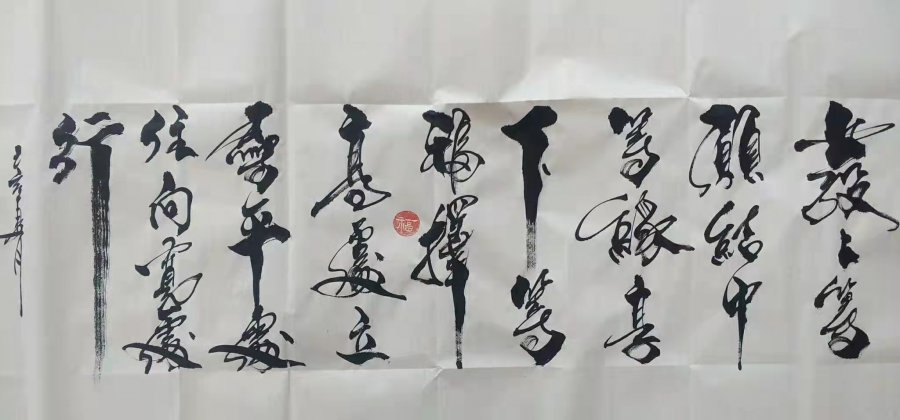 發上等
願結中
等緣享
下等
福擇
高處立
尋平處
住向寬處
行